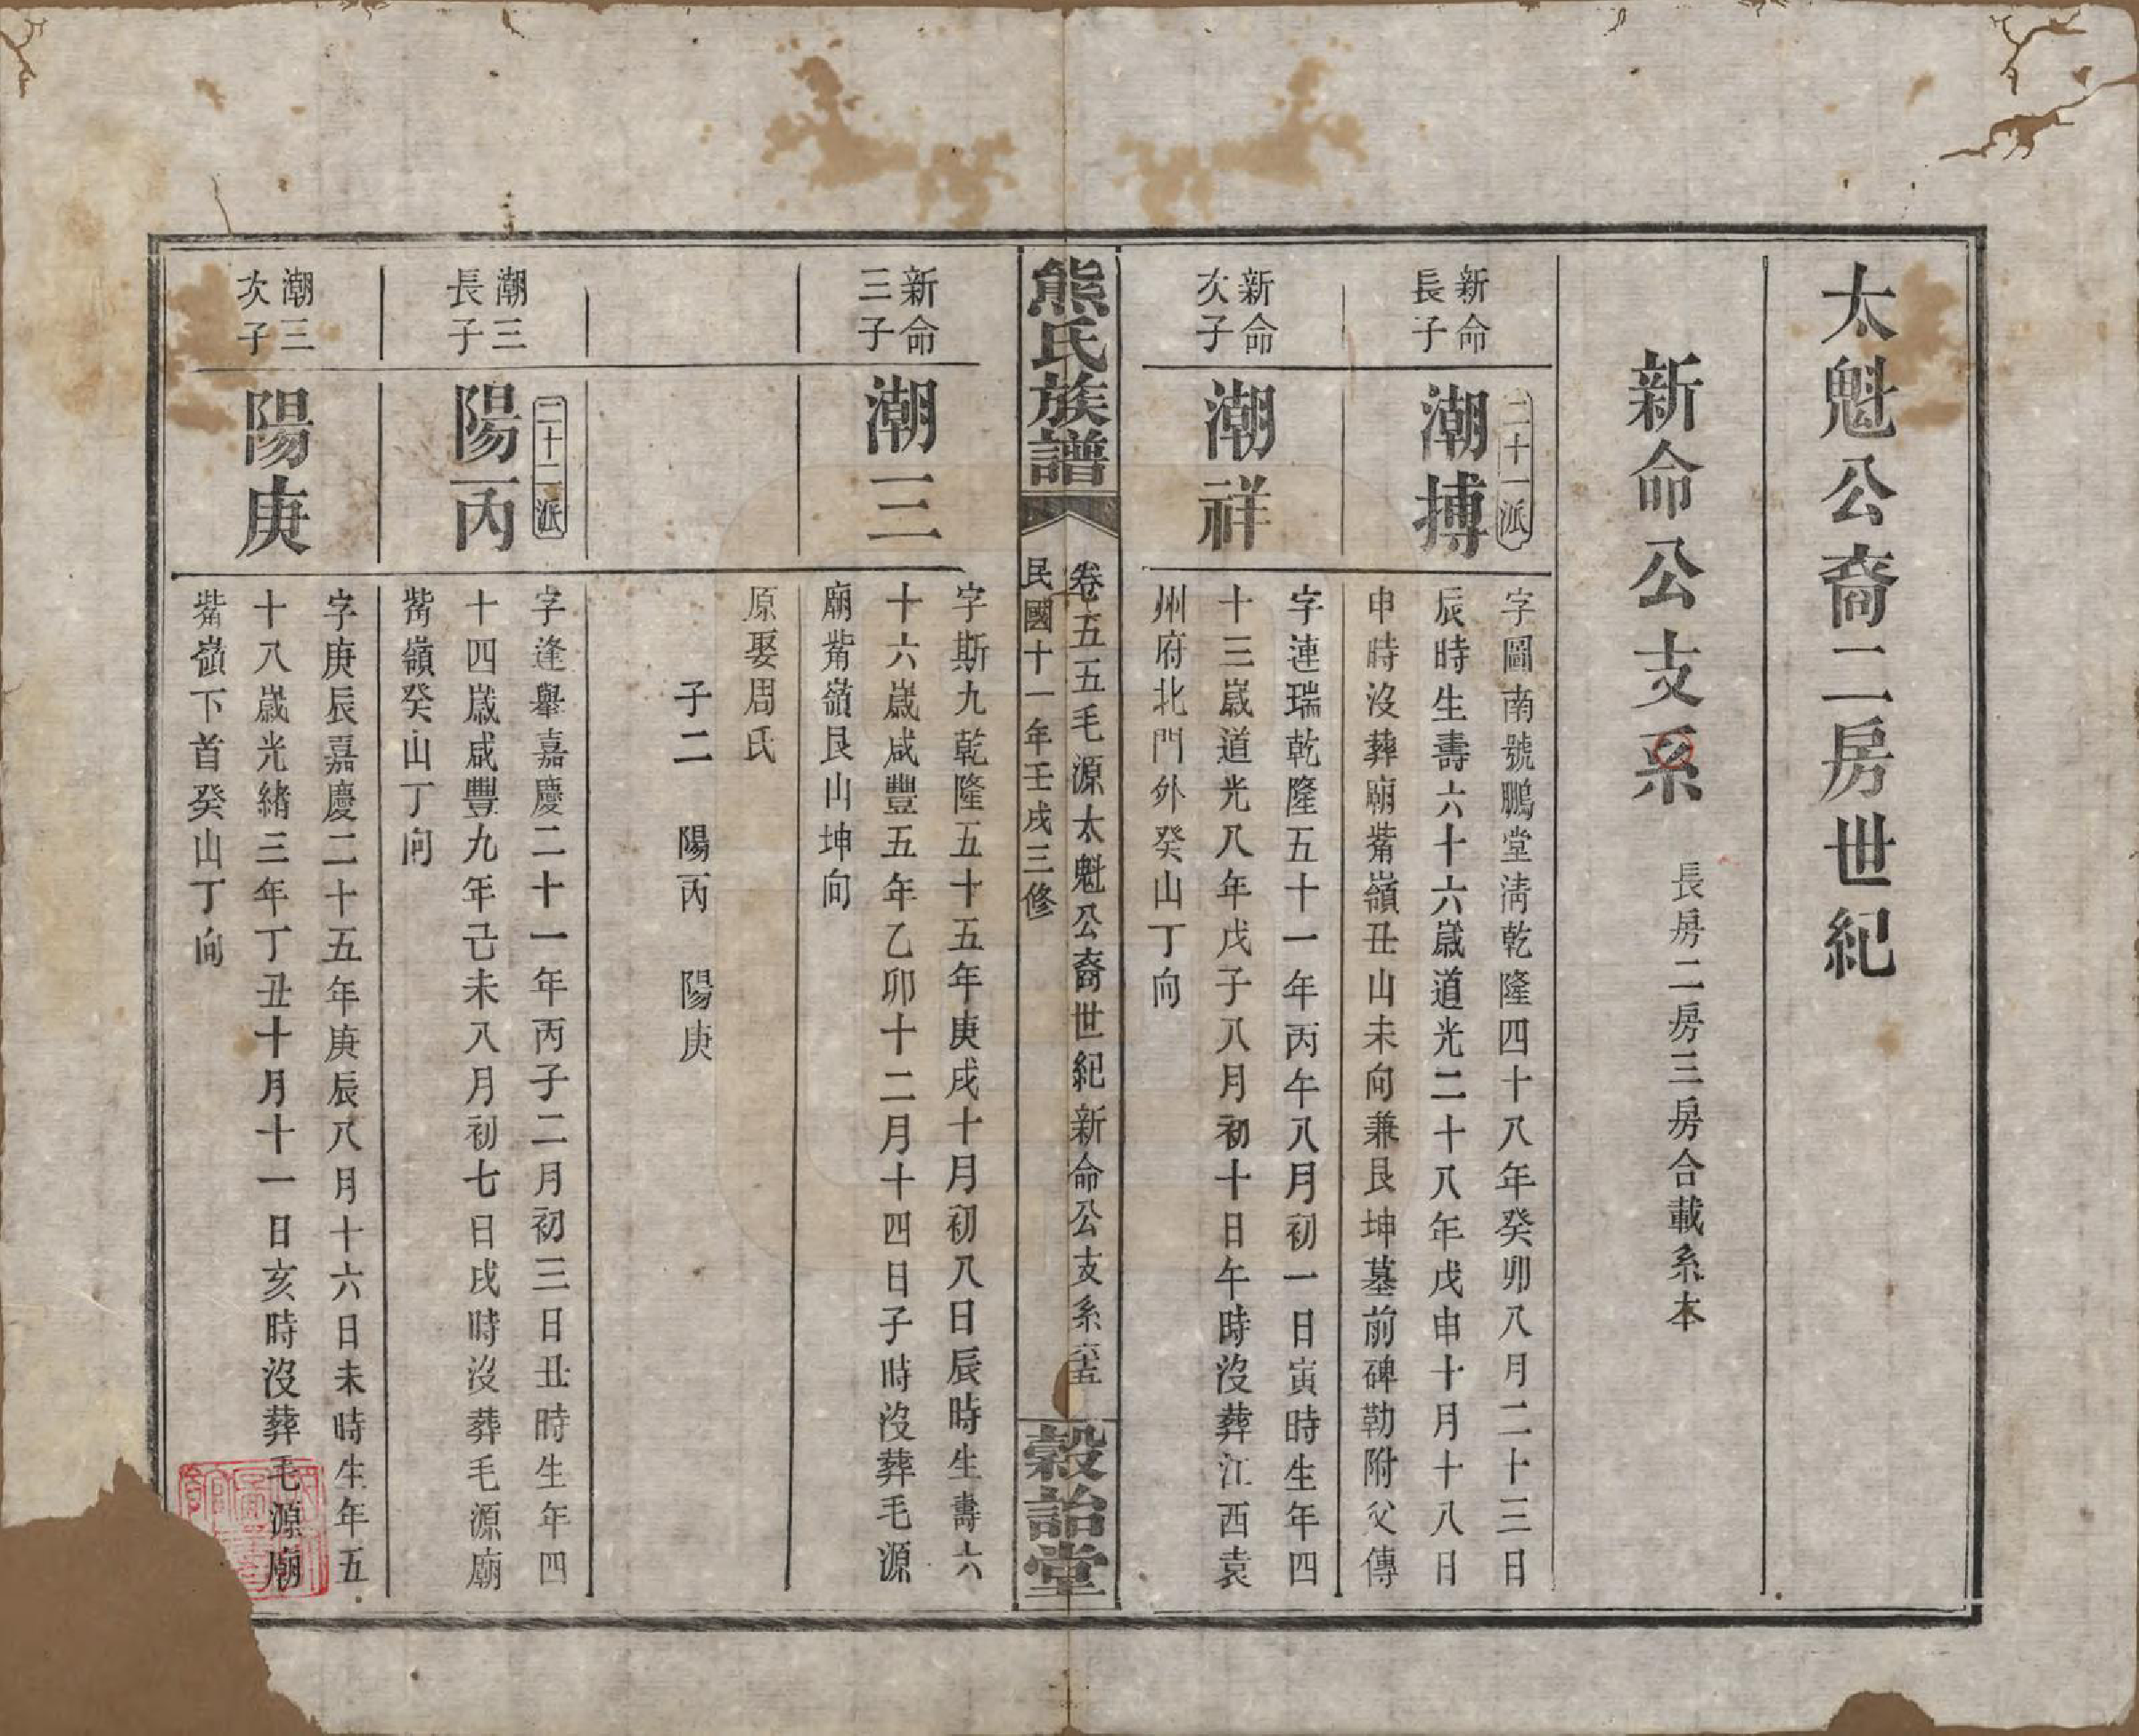 太魁公裔二房世紀
新命公支系
長房二房三房合載系本
新命
長子
二十一派
潮摶
字圖南號鵬堂清乾隆四十八年癸卯八月二十三日
辰時生壽六十六歲道光二十八年戊申十月十八日
申時沒葬廟觜嶺丑山未向兼艮坤墓前碑勒附父傳
新命
次子
潮祥
字連瑞乾隆五十一年丙午八月初一日寅時生年四
十三歲道光八年戊子八月初十日午時沒葬江西袁
州府北門外癸山丁向
熊氏族譜
卷五五毛源太魁公裔世紀新命公支系
民國十一年壬戌三修
穀詒堂
新命
三子
潮三
字斯九乾隆五十五年庚戌十月初八日辰時生壽六
十六歲咸豐五年乙卯十二月十四日子時沒葬毛源
廟觜嶺艮山坤向
原娶周氏
子二 陽丙 陽庚
潮三
長子
二十二派
陽丙
字逢舉嘉慶二十一年丙子二月初三日丑時生年四
十四歲咸豐九年己未八月初七日戌時沒葬毛源廟
觜嶺癸山丁向
潮三
次子
陽庚
字庚辰嘉慶二十五年庚辰八月十六日未時生年五
十八歲光緒三年丁丑十月十一日亥時沒葬毛源廟
觜嶺下首癸山丁向